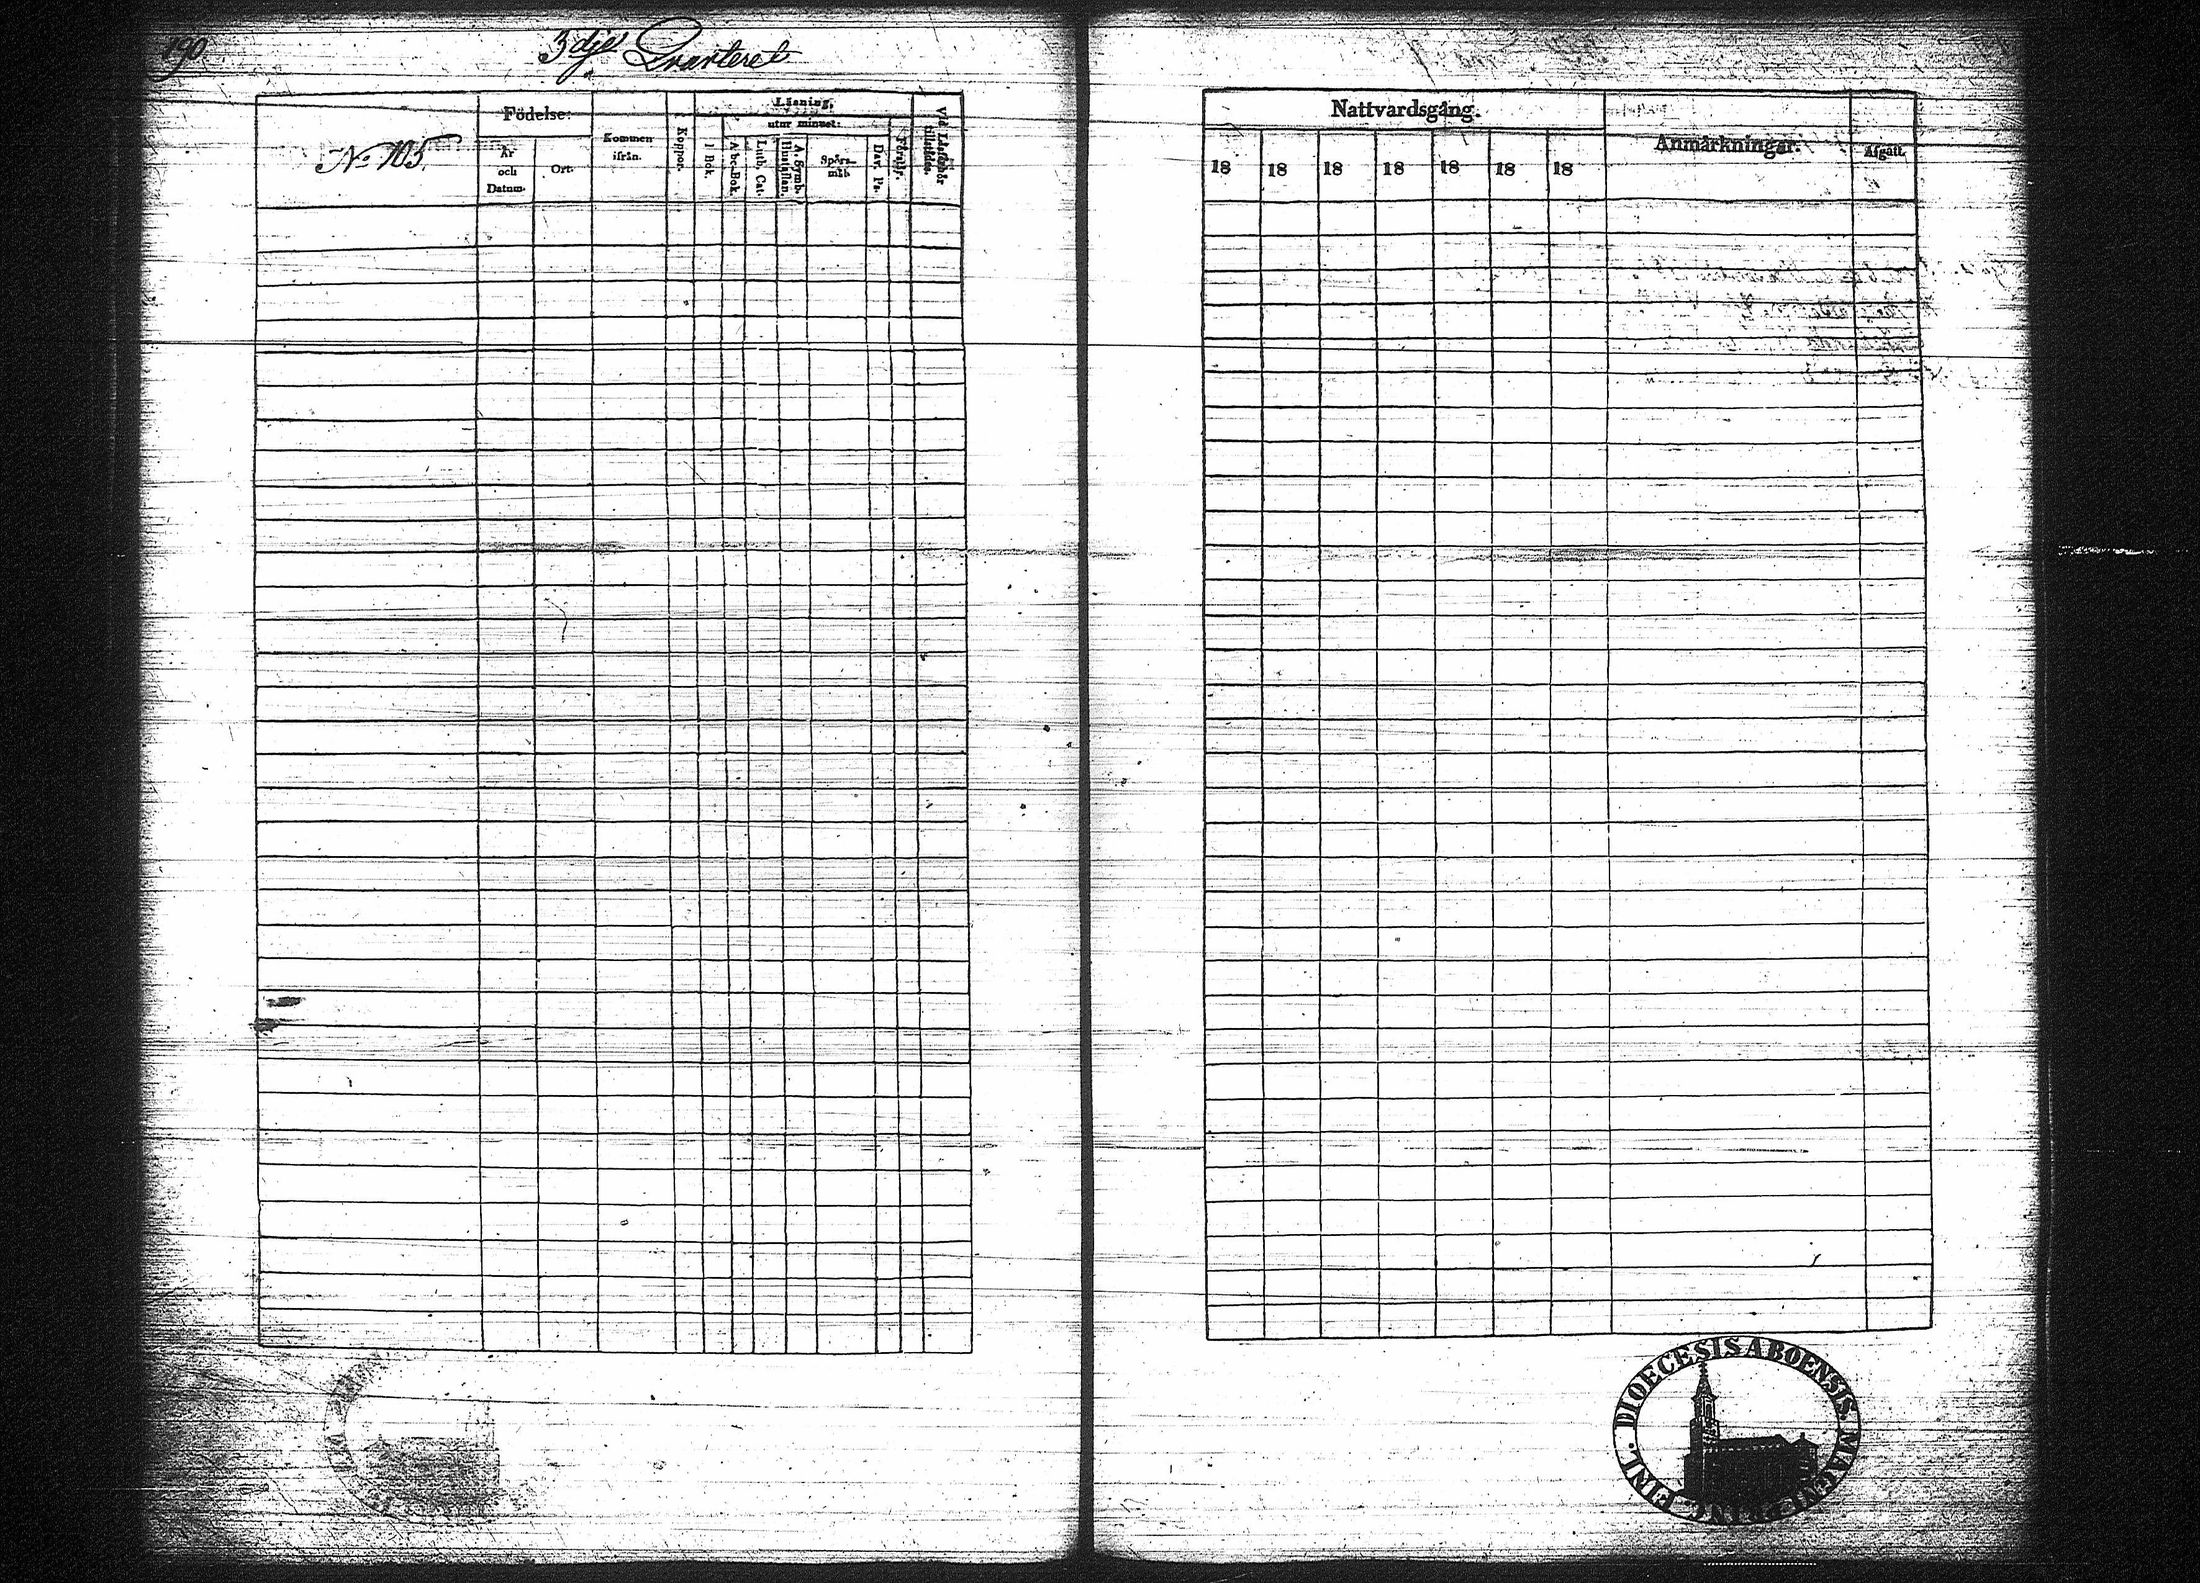 190.
3dje Qvarteret
No 105.
Födelse:
År och Datum.
Ort.
Kommen ifrån.
Koppor.
Läsning,
utur minnet:
I Bok.
Abc-Bok.
Luth. Cat.
Hustaflan.
A. Symb.
Spörs-mål
Dav. Ps.
Förstår.
Vid Läseförhör tillstädes.
Nattvardsgång.
18 18 18 18 18 18 18
Anmärkningar.
Afgått.
DIOECESIS ABOENSIS. MAGNI PRINC. FINL.